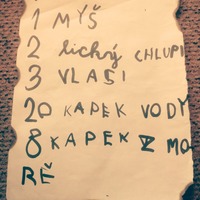 1 MYŠ
2 lichný CHLUPI
3 VLASI
20 KAPEK VODY
8 KAPEK V MO
RĚ